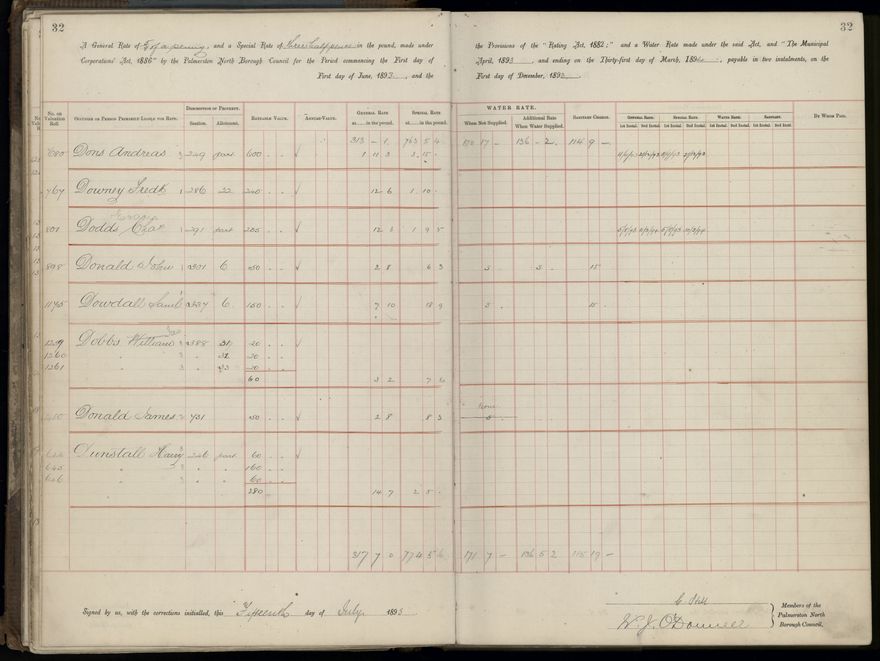 32
32
A General Rate of 5/8 of a penny, and a Special Rate of three halfpence in the pound, made under
the Provisions of the "Rating Act, 1882;" and a Water Rate made under the said Act, and "The Municipal
Corporations' Act, 1886" by the Palmerston North Borough Council for the Period commencing the First day of
April, 1893, and ending on the Thirty-first day of March, 1894, payable in two instalments, on the
First day of June, 1893, and the
First day of December, 1893.
No. on Valuation Roll.
Occupier or Person Primarily Liable for Rate.
Description of Property.
Section.
Allotment.
Rateable Value.
Annual Value.
General Rate at in the pound.
Special Rate at in the pound.
WATER RATE.
When Not Supplied.
Additional Rate When Water Supplied.
Sanitary Charge.
General Rate.
Special Rate.
Water Rate.
Sanitary.
1st Instal. 2nd Instal. 1st Instal. 2nd Instal. 1st Instal. 2nd Instal. 1st Instal. 2nd Instal.
By Whom Paid.
313 - 1 763 5 4 170 17 - 136 - 2 114 9 -
Dons Andreas 249 part 600 1 11 3 3 15 -
767 Downey Fredk 286 22 240 12 6 1 10 -
801 Dodds Chas 291 part 12 1 9
898 Donald John 301 6 50 2 8 6 3 5 5 15
Dowdall Saml 337 6 150 7 10 18 9 5 15
1259 Dobbs William 388 31 20
1260 " " 32 20
1261 " " 33 20
60 3 2 7 6
Donald James 731 50 2 8 6 3 None
Dunstall Harry 246 part 60
645 " " " 160
646 " " " 60
280 14 7
317 7 0 774 5 6 171 7 - 136 5 2 115 19 -
Signed by us, with the corrections initialled, this Fifteenth day of July 1893
W. J. O'Donnell
Members of the
Palmerston North
Borough Council.